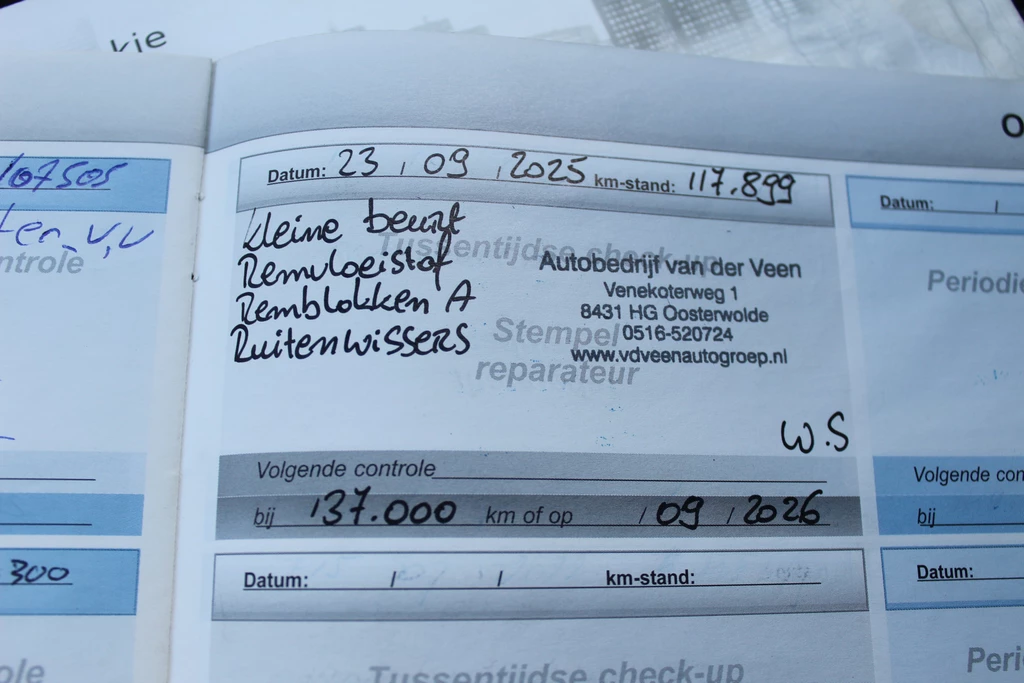 kie
107505
ter_v,v
ntrole
300
ole
Datum: 23 / 09 / 2025 km-stand: 117.899
kleine beurt
Tussentijdse check-up
Remvloeistof
Remblokken A
Ruitenwissers
Autobedrijf van der Veen
Venekoterweg 1
8431 HG Oosterwolde
Stempel 0516-520724
www.vdveenautogroep.nl
reparateur
W.S
Volgende controle
bij 137.000 km of op / 09 / 2026
Datum: / / km-stand:
Tussentijdse check-up
O
Datum: /
Periodie
Volgende con
bij
Datum:
Peri